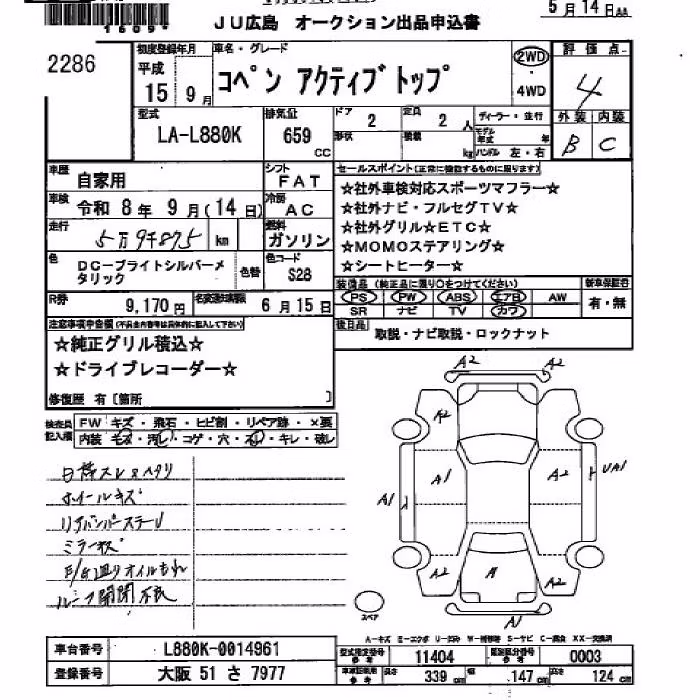 1609
JU広島 オークション出品申込書
5月14日AA
2286
初度登録年月 車名・グレード 評価点
平成 15 9月
コペン アクティブトップ
2WD
4WD
4
型式 LA-L880K
排気量 659 CC
ドア 2
定員 2人
形状 積載 kg
ディーラー・並行
モデル年式 年
ハンドル 左・右
外装 内装
B C
車歴 自家用
シフト FAT
セールスポイント(正常に機能するものに限ります)
☆社外車検対応スポーツマフラー☆
☆社外ナビ・フルセグTV☆
☆社外グリル☆ETC☆
☆MOMOステアリング☆
☆シートヒーター☆
車検 令和 8年 9月(14日)
冷房 AC
走行 5万9千875 km
燃料 ガソリン
色 DC-ブライトシルバーメタリック
色替
色コード S28
装備品(純正品に限り○をつけてください) 新車保証書
PS PW ABS エアB AW
SR ナビ TV カワ
有・無
R券 9,170円
名変通知期限 6月15日
後日品 取説・ナビ取説・ロックナット
☆純正グリル積込☆
☆ドライブレコーダー☆
修復歴 有〔箇所 〕
検査員記入欄
FW キズ・飛石・ヒビ割・リペア跡・×要
内装 キズ・汚レ・コゲ・穴・・キレ・破レ
ホイールキズ
ルーフ開閉不良
A2 A2
A2 A2
A1 A2
A1 UA1
A2 A A2
A1
スペア
車台番号 L880K-0014961
登録番号 大阪 51 さ 7977
型式指定番号 参考 11404
類別区分番号 参考 0003
長さ 339 cm 幅 147 cm 高さ 124 cm